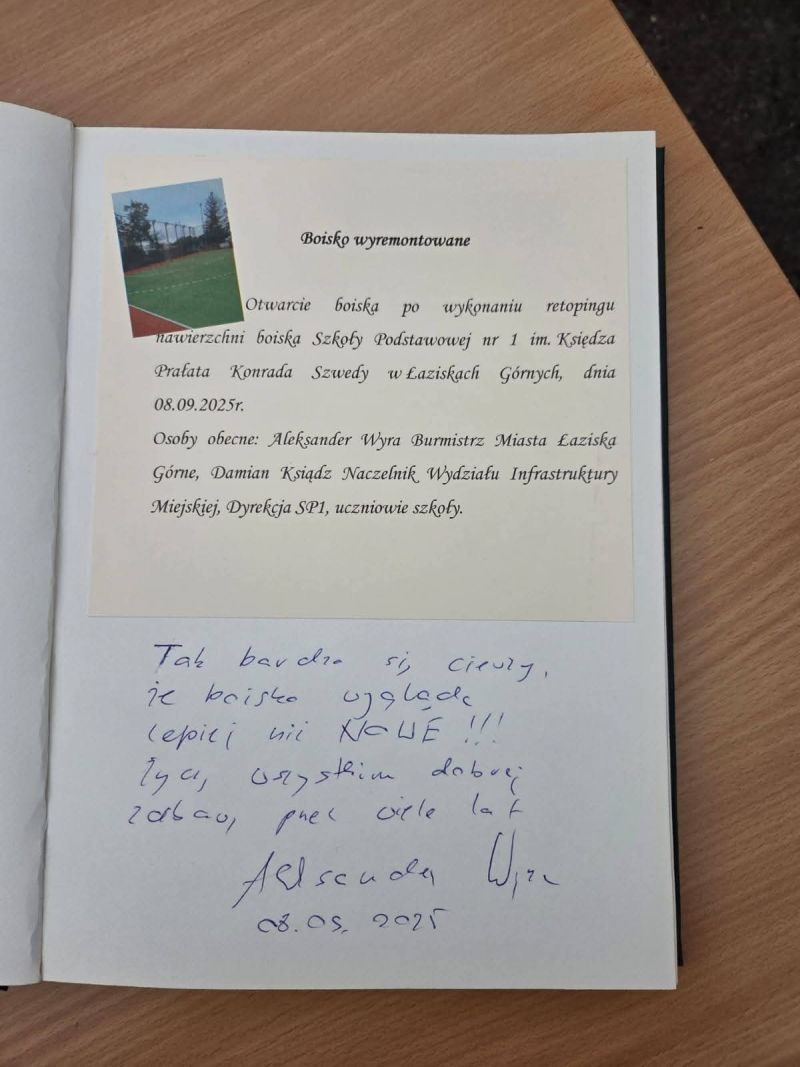 Boisko wyremontowane
Otwarcie boiska po wykonaniu retopingu
nawierzchni boiska Szkoły Podstawowej nr 1 im. Księdza
Prałata Konrada Szwedy w Łaziskach Górnych, dnia
08.09.2025r.
Osoby obecne: Aleksander Wyra Burmistrz Miasta Łaziska
Górne, Damian Ksiądz Naczelnik Wydziału Infrastruktury
Miejskiej, Dyrekcja SP1, uczniowie szkoły.
Tak bardzo się cieszy,
że boisko wygląda
lepiej niż NOWE !!!
Życzę wszystkim dobrej
zabawy przez wiele lat
Aleksander Wyra
08.09.2025